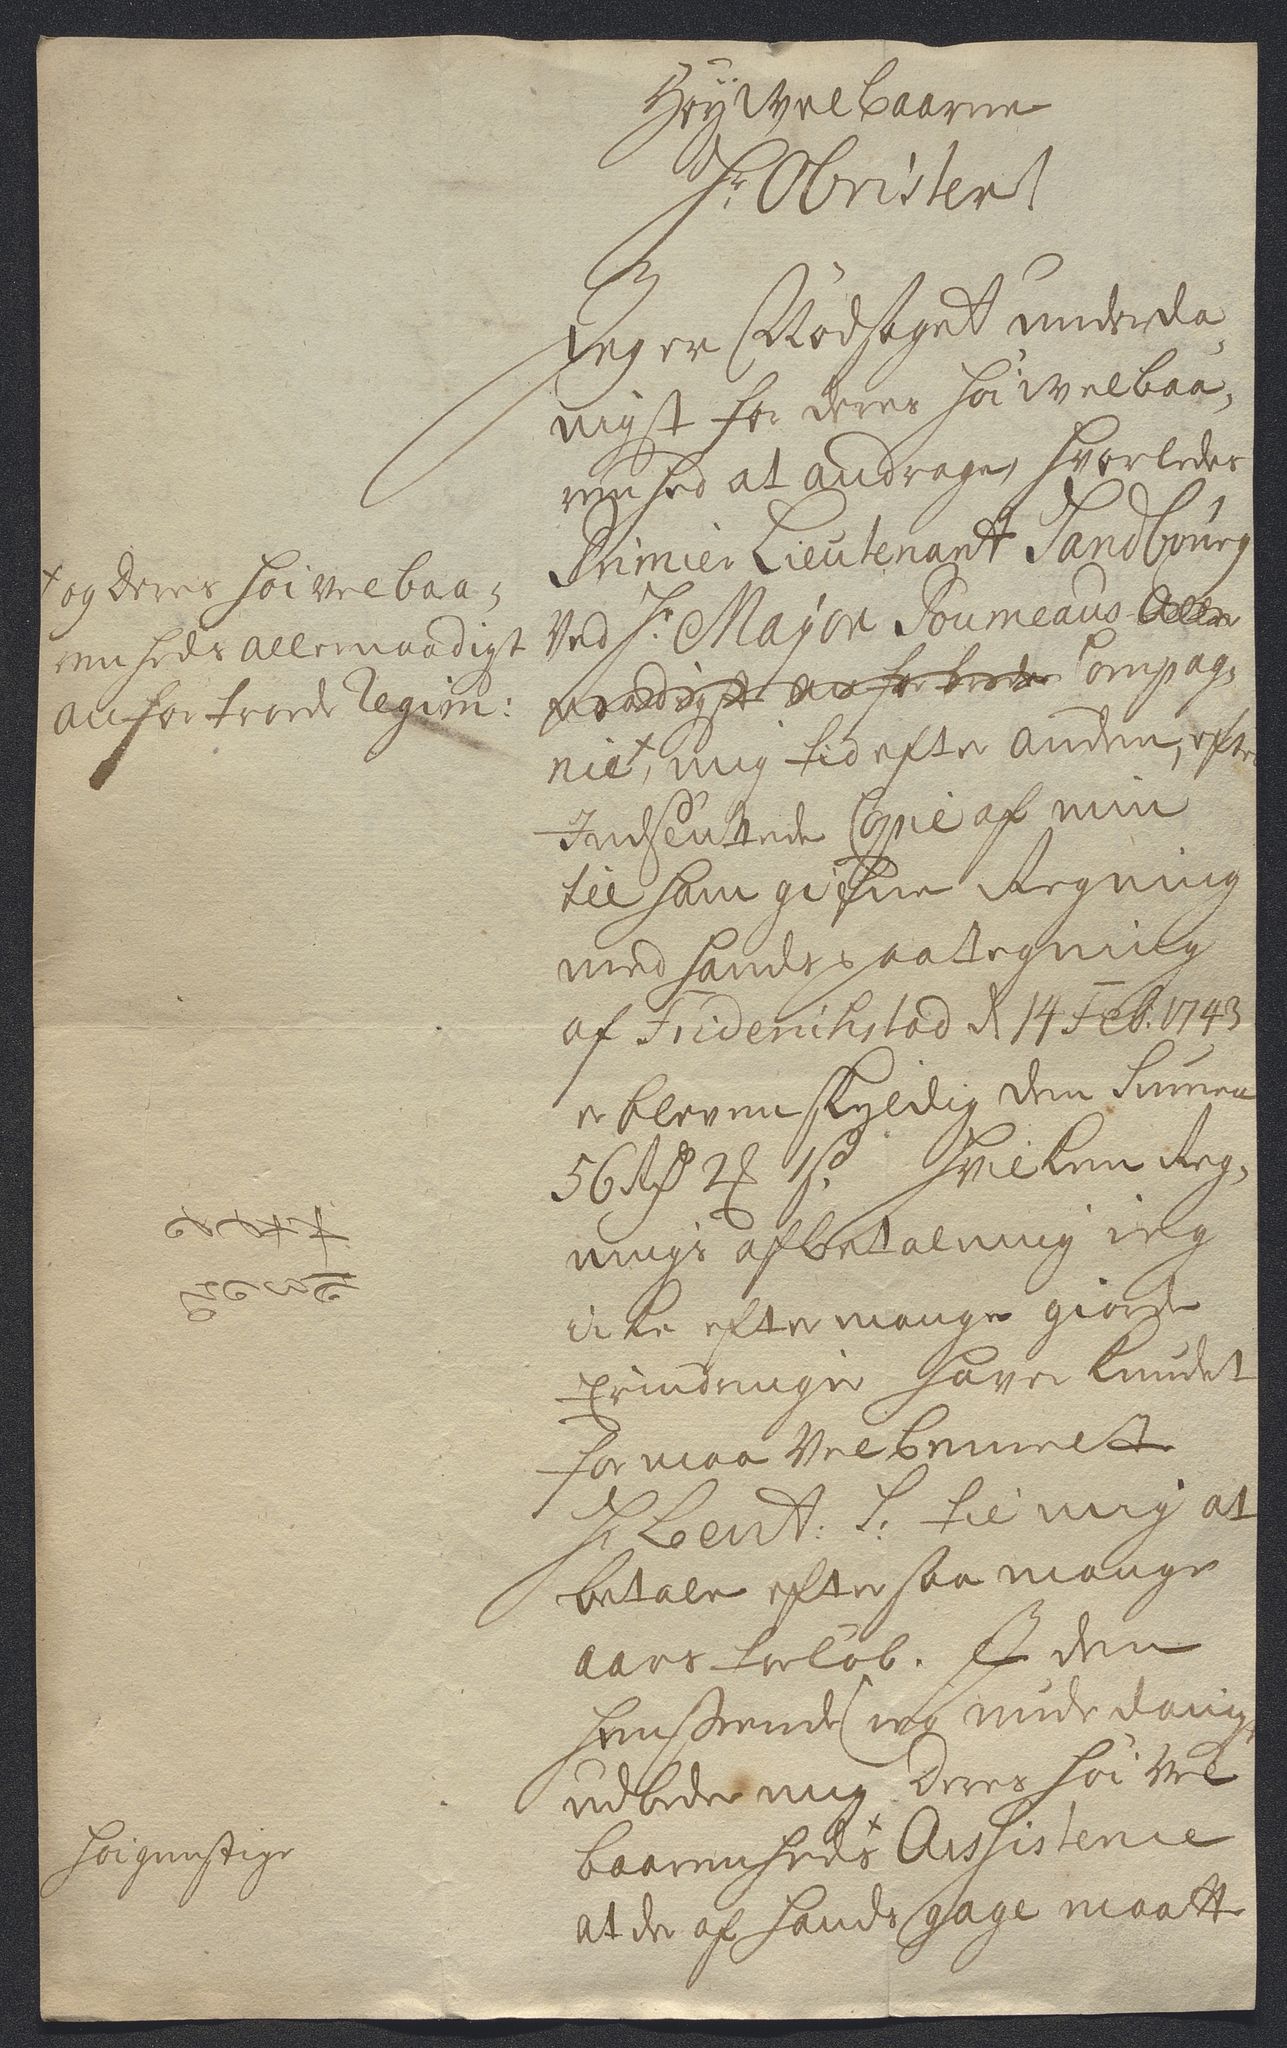 Høÿwelbaarne
Hr. Obrister!
Jeg er Nödsaget underda,
nigst for deres höiwelbaa,
renhed at andrage, hvorledes
Primier Lieutenantt Sandbourg
ved Hr. Major Soumeaus Aller
naadigst anfortroede Compag,
nie +, mig tid efter anden, efter
Indsentede Copie af min
til ham gifne Regning
med hands paategning
af Friderichstad d 14 Feb. 1743
er bleven skyldig den Summa
56 Rd 2 1 s. hvilken Reg,
nings afbetalning ieg
icke efter mange giorde
Erindringer haver kundet
formaa velbemelte
Hr Leut: S: til mig at
betale efter saa mange
aars forlöb. I den
henseende ieg underdanig,
udbeder mig Deres höivel
baarenheds + Assistence
at der af hands gage maatte
+ og deres höivelbaa,
renheds allernaadigst
anfortroede Regim:
höigunstige